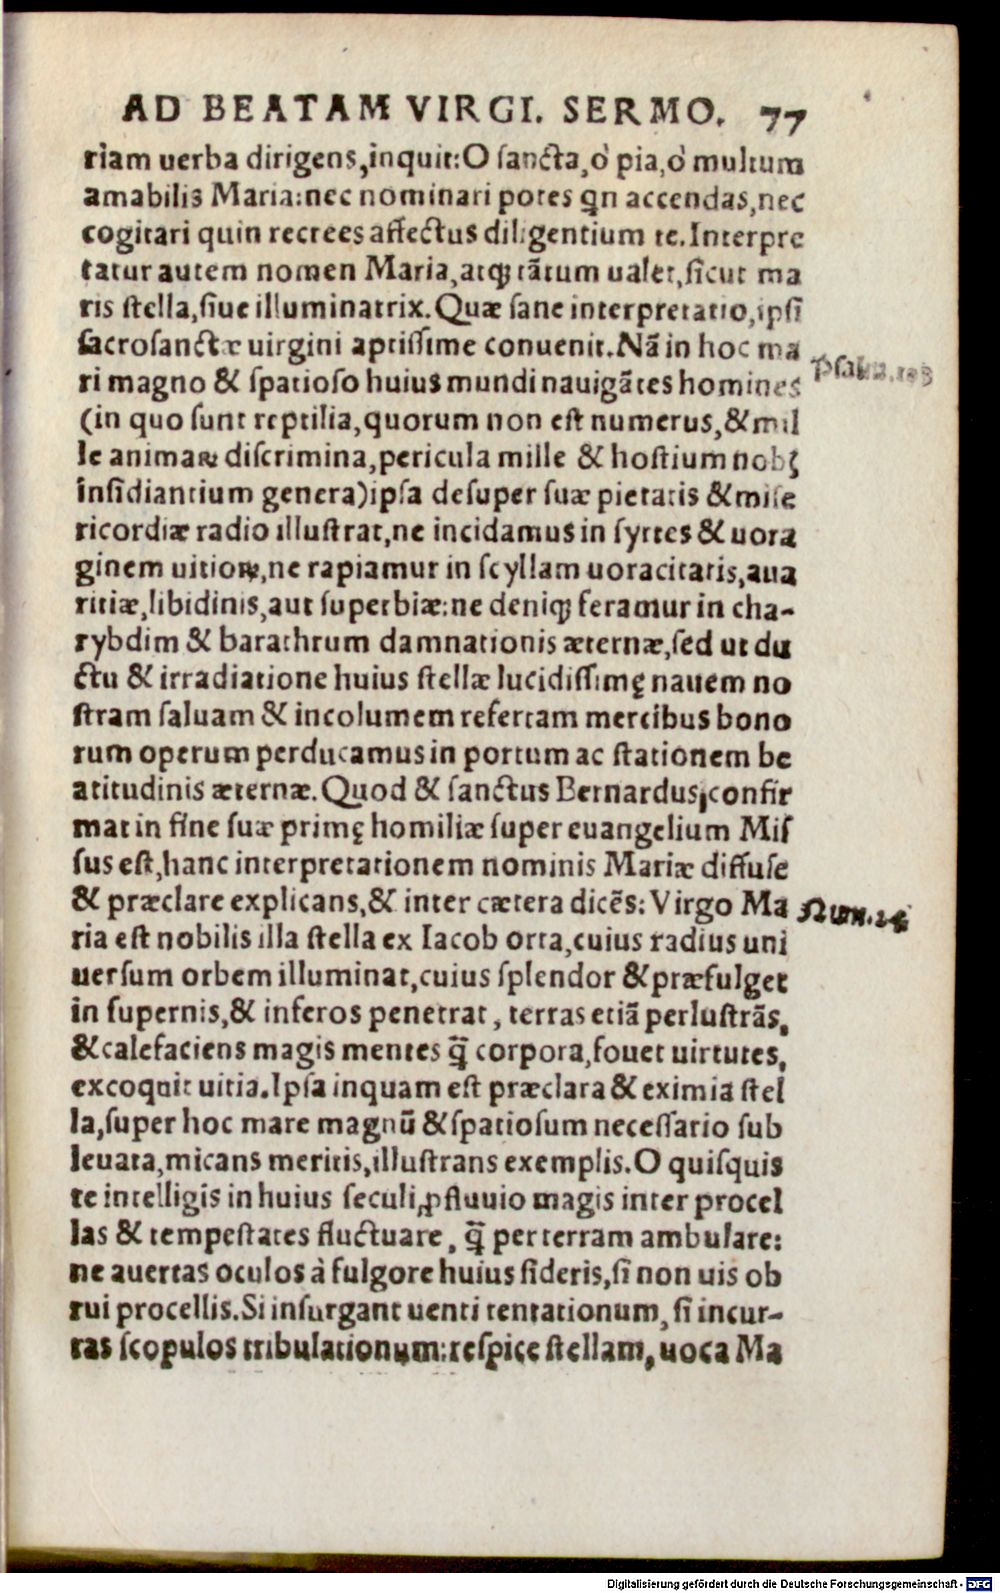 AD BEATAM VIRGI. SERMO. 77
riam uerba dirigens, inquit: O sancta, ò pia, ò multum
amabilis Maria: nec nominari potes qn accendas, nec
cogitari quin recrees affectus diligentium te. Interpre
tatur autem nomen Maria, atq; tãtum ualet, sicut ma
ris stella, siue illuminatrix. Quæ sane interpretatio, ipsi
sacrosanctæ uirgini aptissime conuenit. Nã in hoc ma
ri magno & spatioso huius mundi nauigãtes homines
Psalm. 103
(in quo sunt reptilia, quorum non est numerus, & mil
le animaꝝ discrimina, pericula mille & hostium nobꝭ
insidiantium genera) ipsa desuper suæ pietatis & mise
ricordiæ radio illustrat, ne incidamus in syrtes & uora
ginem uitioꝝ, ne rapiamur in scyllam uoracitatis, aua
ritiæ, libidinis, aut superbiæ: ne deniq; feramur in cha-
rybdim & barathrum damnationis æternæ, sed ut du
ctu & irradiatione huius stellæ lucidissimę nauem no
stram saluam & incolumem refertam mercibus bono
rum operum perducamus in portum ac stationem be
atitudinis æternæ. Quod & sanctus Bernardus, confir
mat in fine suæ primę homiliæ super euangelium Mis
sus est, hanc interpretationem nominis Mariæ diffuse
& præclare explicans, & inter cætera dicẽs: Virgo Ma
Num. 24
ria est nobilis illa stella ex Iacob orta, cuius radius uni
uersum orbem illuminat, cuius splendor & præfulget
in supernis, & inferos penetrat, terras etiã perlustrãs,
& calefaciens magis mentes q̃ corpora, fouet uirtutes,
excoquit uitia. Ipsa inquam est præclara & eximia stel
la, super hoc mare magnũ & spatiosum necessario sub
leuata, micans meritis, illustrans exemplis. O quisquis
te intelligis in huius seculi ꝓfluuio magis inter procel
las & tempestates fluctuare, q̃ per terram ambulare:
ne auertas oculos à fulgore huius sideris, si non uis ob
rui procellis. Si insurgant uenti tentationum, si incur-
ras scopulos tribulationum: respice stellam, uoca Ma
Digitalisierung gefördert durch die Deutsche Forschungsgemeinschaft - DFG